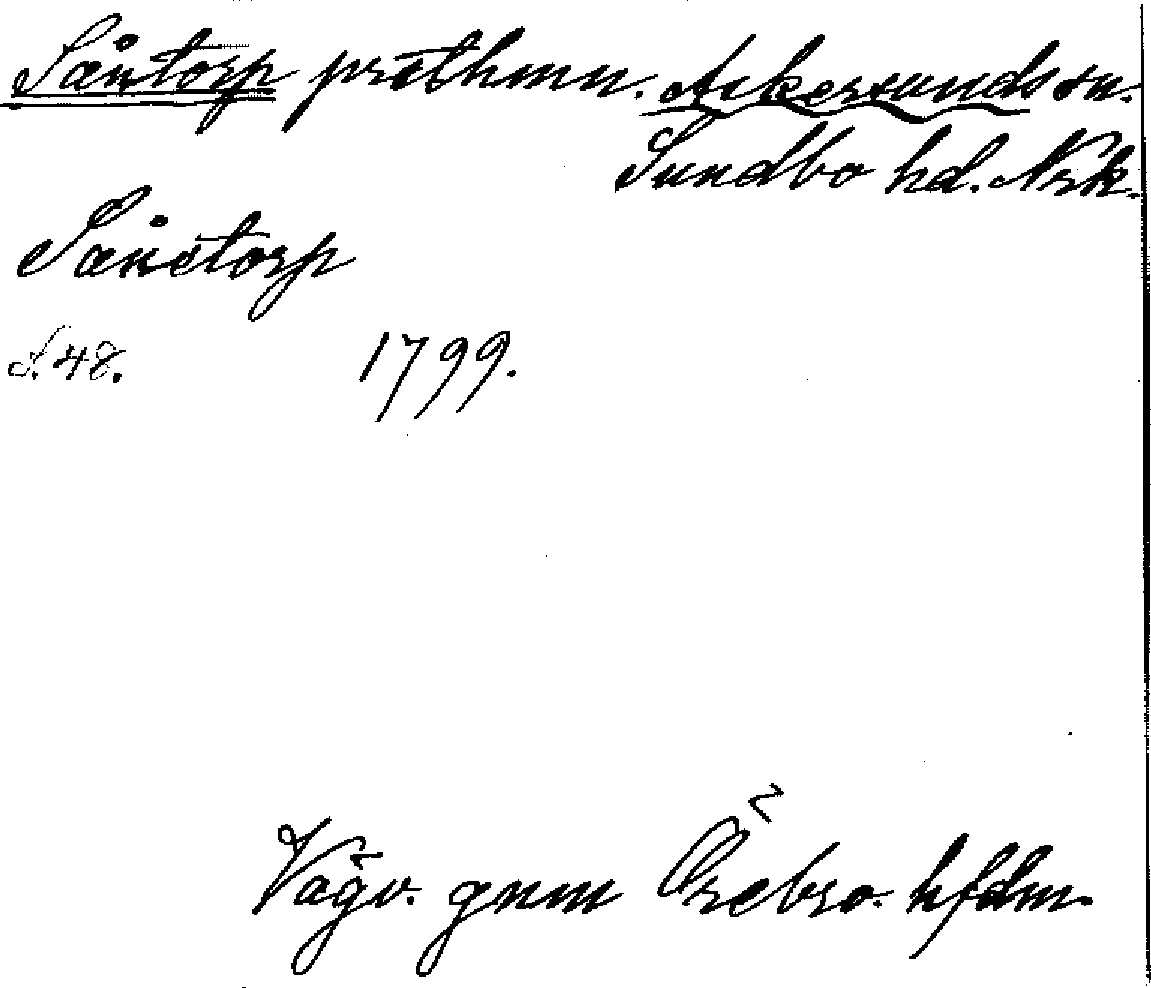 Såntorp prästhmn. Askersunds sn.
Sundbo hd. Nrk.
Sånstorp
S. 48. 1799.
Vägv. gnm Örebro hfdm.